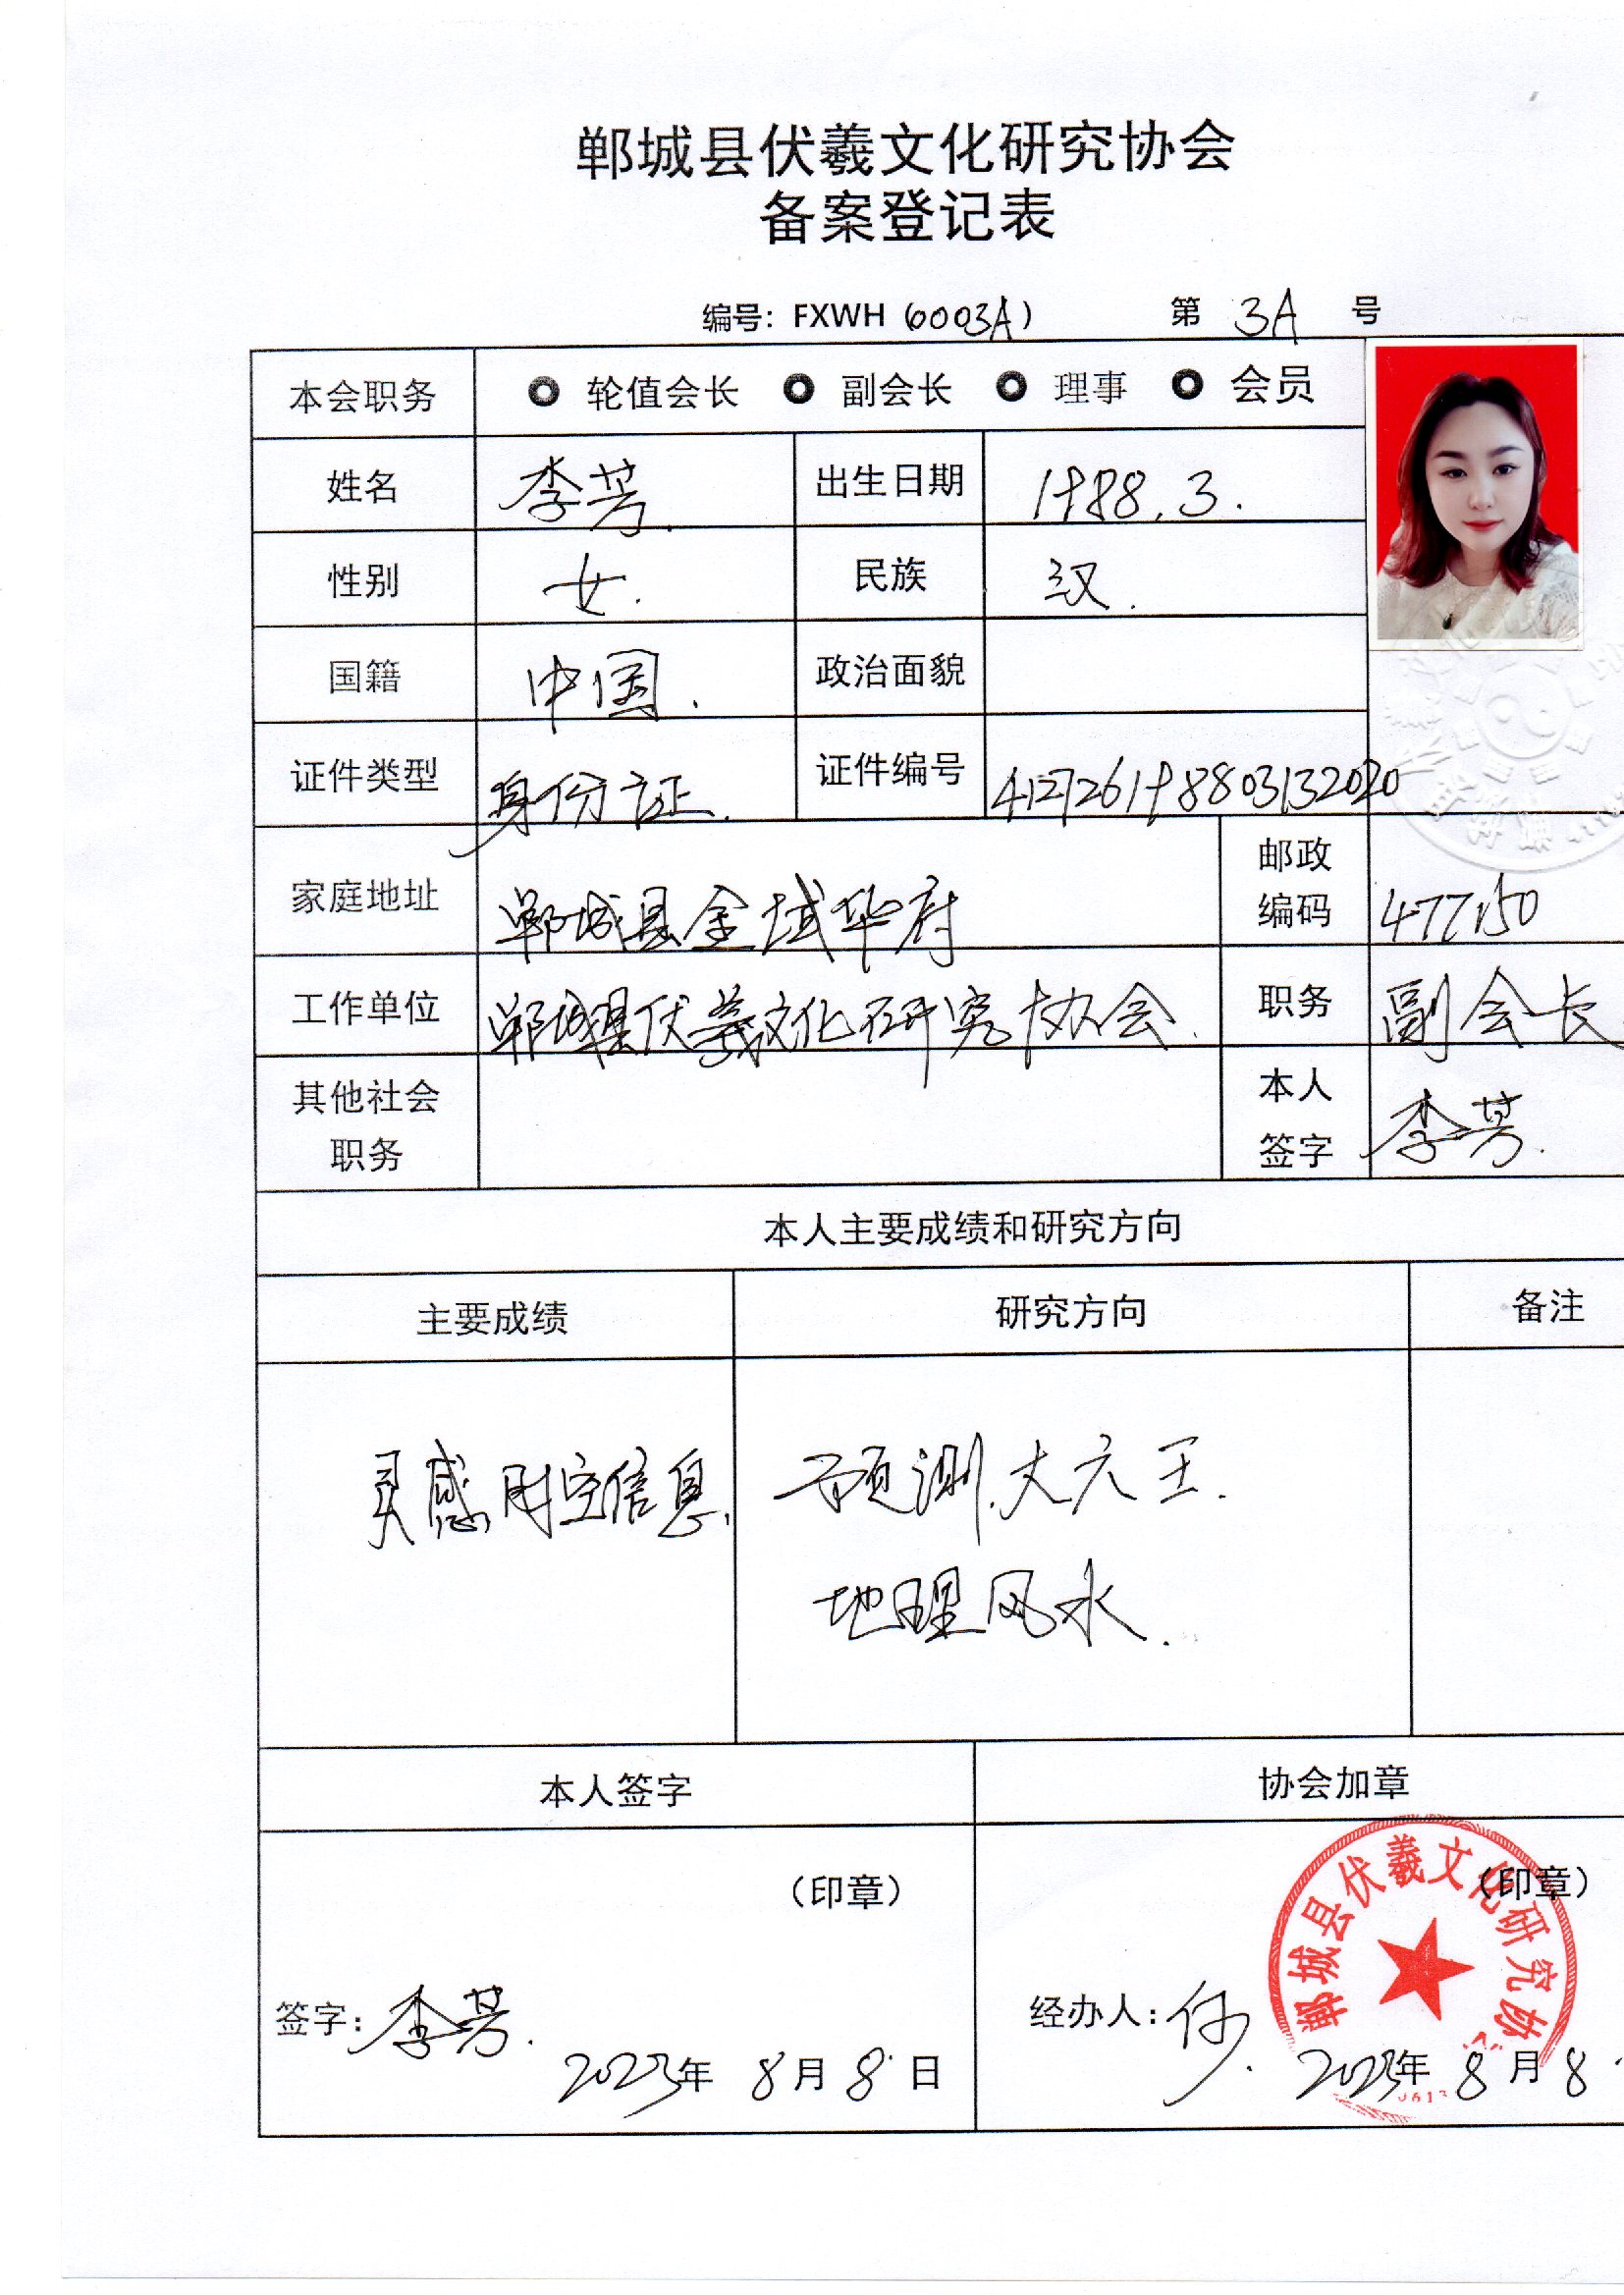 郸城县伏羲文化研究协会
备案登记表
编号：FXWH（6003A） 第 3A 号
本会职务 轮值会长 副会长 理事 会员
姓名 李芳. 出生日期 1988.3.
性别 女. 民族 汉.
国籍 中国. 政治面貌
证件类型 身份证. 证件编号 412726198803132020
家庭地址 郸城县金域华府 邮政编码 477150
工作单位 郸城县伏羲文化研究协会. 职务 副会长
其他社会职务 本人签字 李芳.
本人主要成绩和研究方向
主要成绩 研究方向 备注
灵感时空信息. 预测.大六壬.
地理风水.
本人签字 协会加章
（印章） （印章）
郸城县伏羲文化研究协
签字：李芳. 经办人：
2023年 8月 8日 2023年 8月 8